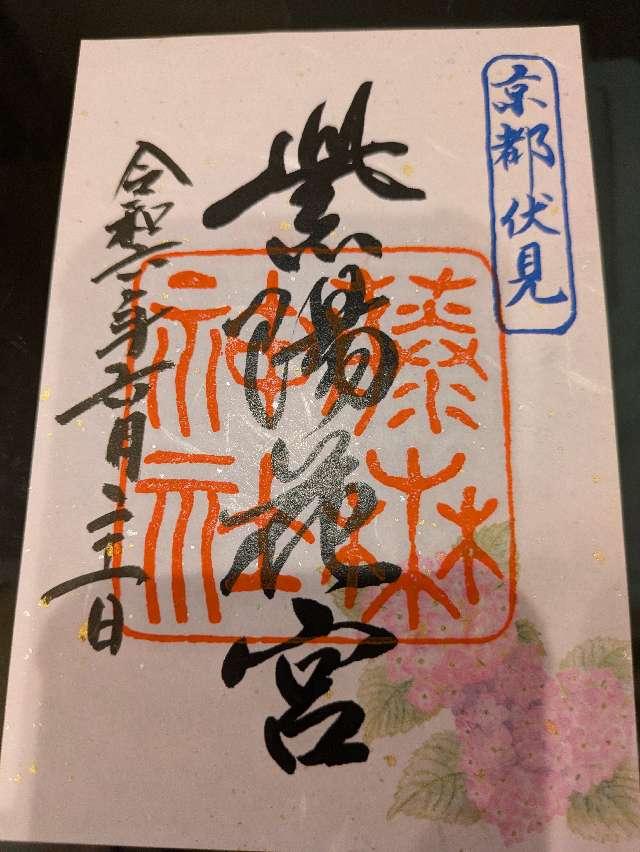 京都伏見
紫陽花宮
藤森
神社
令和六年七月二十一日